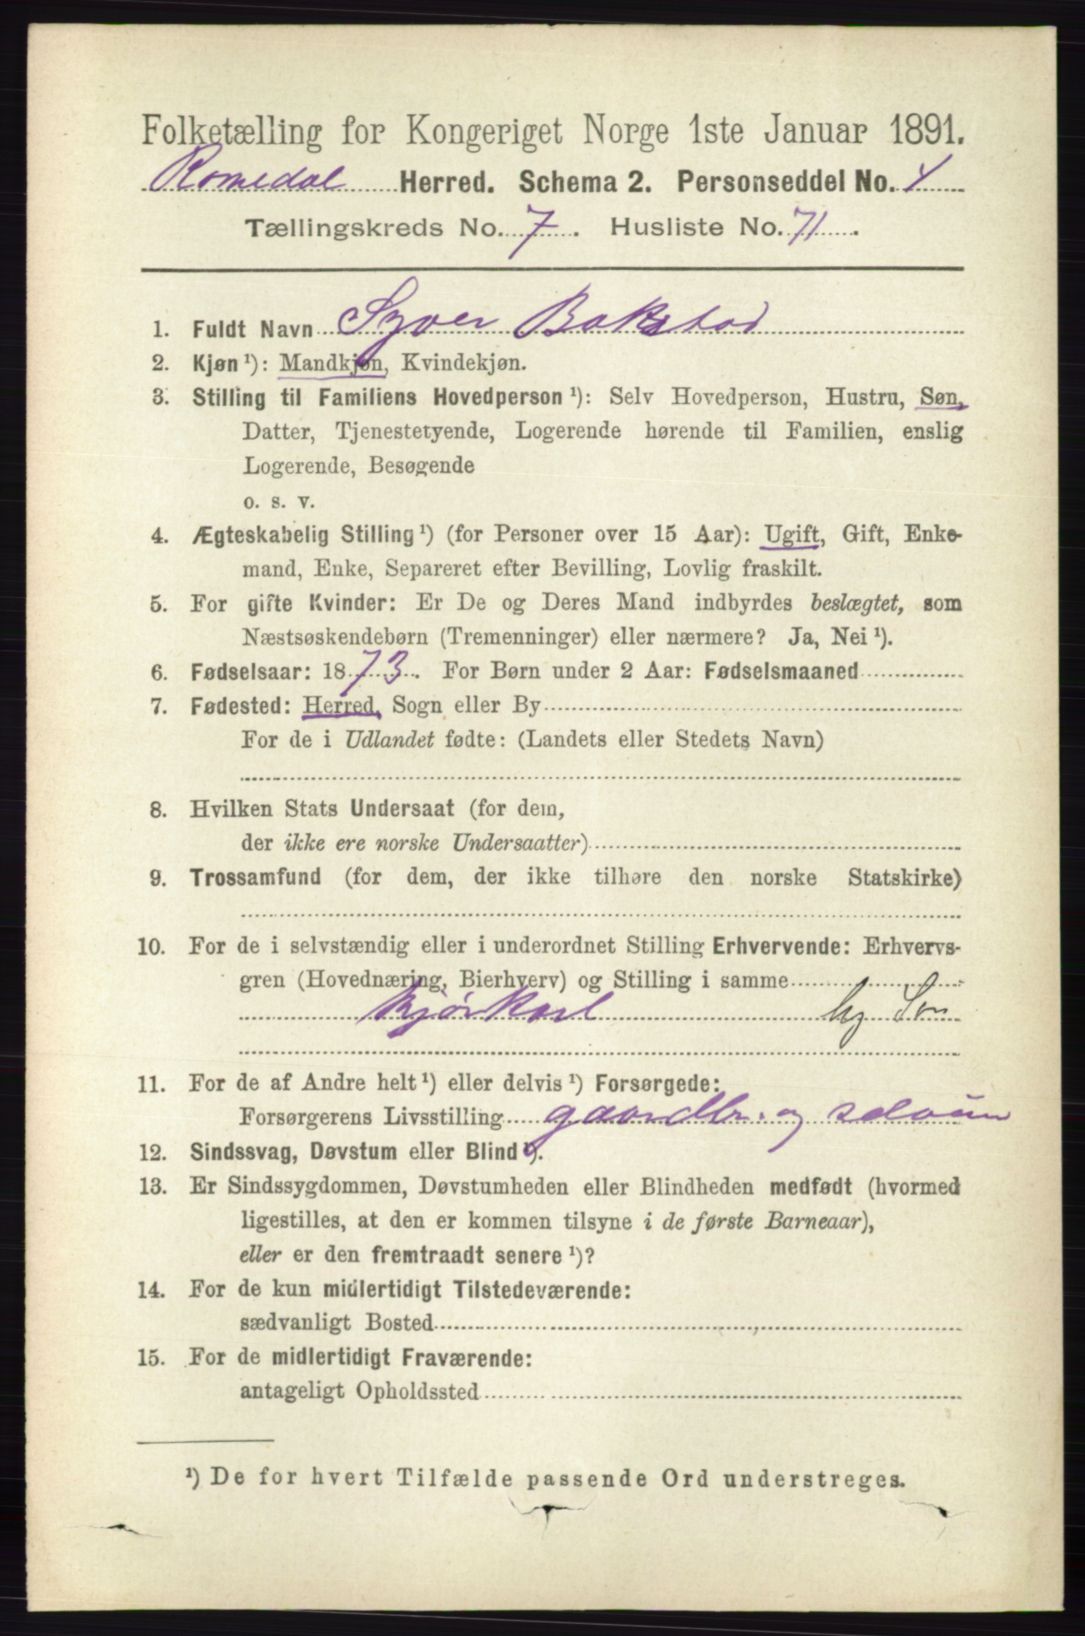 Folketælling for Kongeriget Norge 1ste Januar 1891.
Romedal Herred. Schema 2. Personseddel No. 4
Tællingskreds No. 7. Husliste No. 71.
1. Fuldt Navn Syver Bakstad
2. Kjøn ¹): Mandkjøn, Kvindekjøn.
3. Stilling til Familiens Hovedperson ¹): Selv Hovedperson, Hustru, Søn,
Datter, Tjenestetyende, Logerende hørende til Familien, enslig
Logerende, Besøgende
o. s. v.
4. Ægteskabelig Stilling ¹) (for Personer over 15 Aar): Ugift, Gift, Enke-
mand, Enke, Separeret efter Bevilling, Lovlig fraskilt.
5. For gifte Kvinder: Er De og Deres Mand indbyrdes beslægtet, som
Næstsøskendebørn (Tremenninger) eller nærmere? Ja, Nei ¹).
6. Fødselsaar: 1873. For Børn under 2 Aar: Fødselsmaaned
7. Fødested: Herred, Sogn eller By
For de i Udlandet fødte: (Landets eller Stedets Navn)
8. Hvilken Stats Undersaat (for dem,
der ikke ere norske Undersaatter)
9. Trossamfund (for dem, der ikke tilhøre den norske Statskirke)
10. For de i selvstændig eller i underordnet Stilling Erhvervende: Erhvervs-
gren (Hovednæring, Bierhverv) og Stilling i samme
Kjørkarl hj Søn
11. For de af Andre helt ¹) eller delvis ¹) Forsørgede:
Forsørgerens Livsstilling gaardbr. og selveier
12. Sindssvag, Døvstum eller Blind ¹).
13. Er Sindssygdommen, Døvstumheden eller Blindheden medfødt (hvormed
ligestilles, at den er kommen tilsyne i de første Barneaar),
eller er den fremtraadt senere ¹)?
14. For de kun midlertidigt Tilstedeværende:
sædvanligt Bosted
15. For de midlertidigt Fraværende:
antageligt Opholdssted
¹) De for hvert Tilfælde passende Ord understreges.